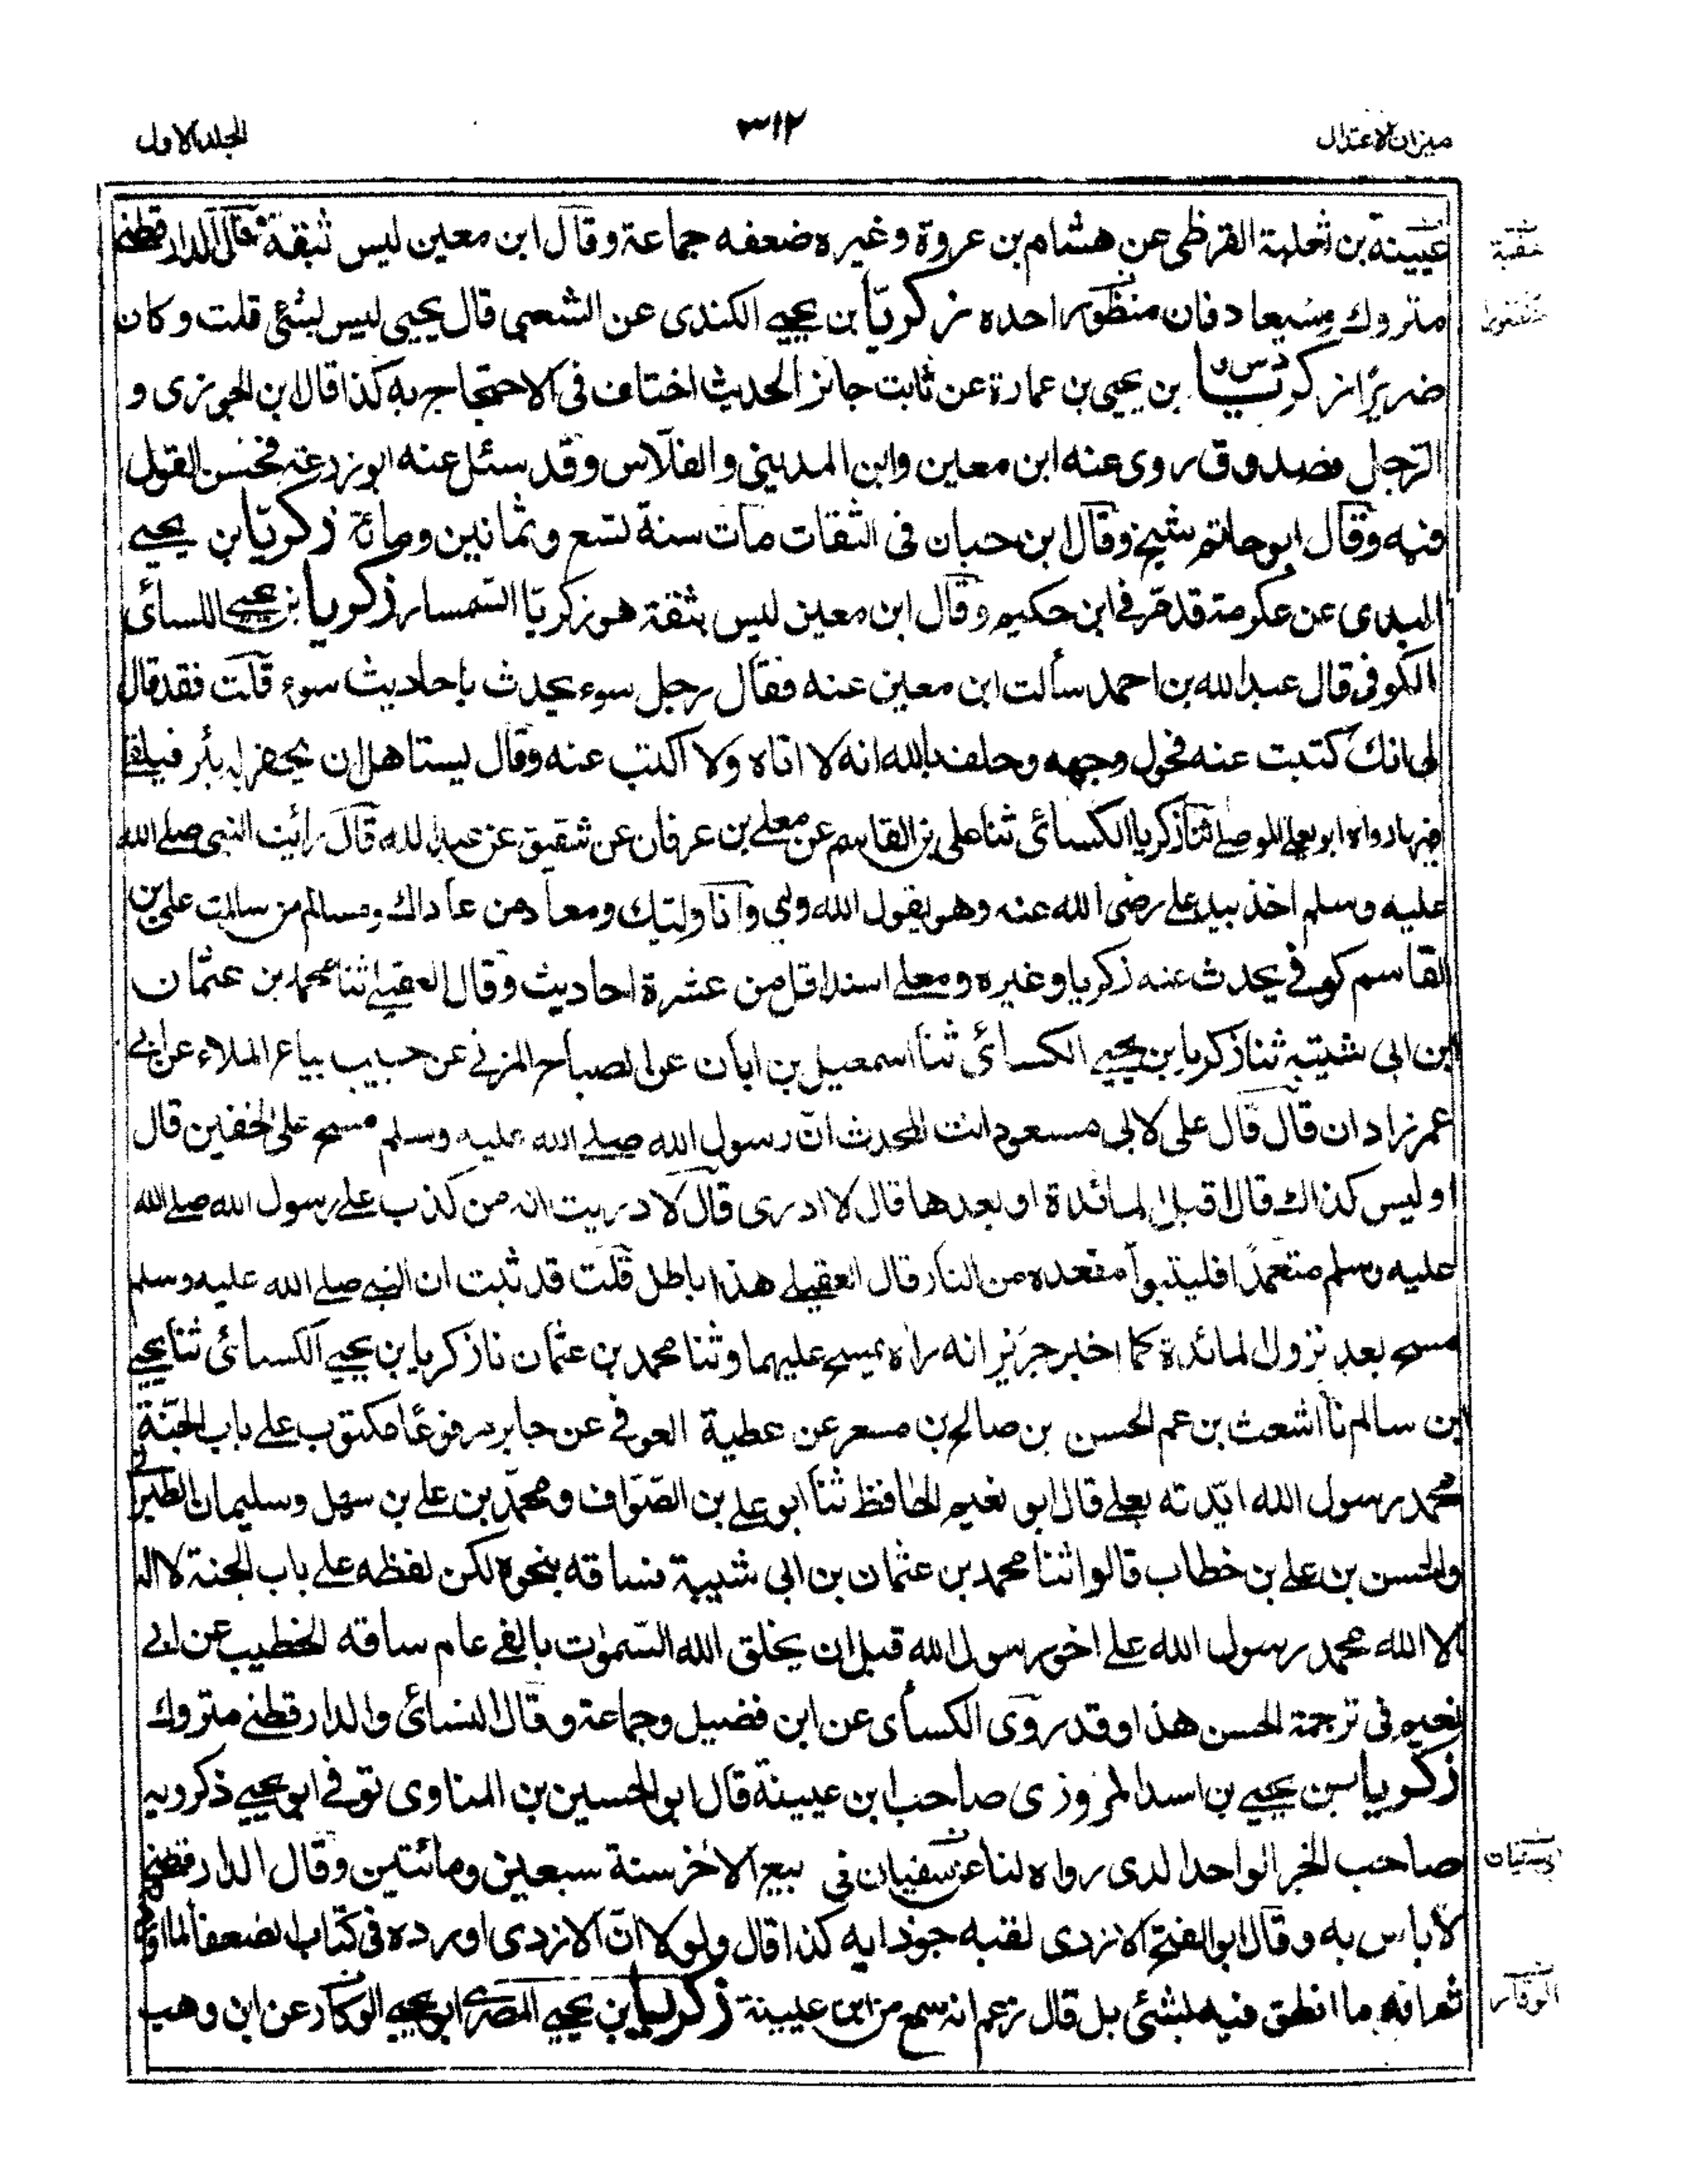 ميزان الاعتدال
٣١٢
الجلد الاول
عيينة بن ثعلبة القرظى عن هشام بن عروة وغيره ضعفه جماعة وقال ابن معين ليس بثقة قال الدارقطنے
متروك منظور احده زكريّا بن يحيے الكندى عن الشعبى قال يحيى ليس بشئى قلت وكان
ضريرًا زكريا بن يحيى بن عمارة عن ثابت جائز الحديث اختلف فى الاحتجاج به كذا قال ابن الجوزى و
الرجل فصدوق روى عنه ابن معين وابن المدينى والفلّاس وقد سئل عنه ابو زرعة فحسن القول
فيه وقال ابو حاتم شيخ وقال ابن حبان فى الثقات مات سنة تسع وثمانين ومائة زكريّا بن يحيے
البدى عن عكرمة قد مرّ فے ابن حكيم وقال ابن معين ليس بثقة هو زكريّا السّمسار زكريا بن يحيے الكسائى
الكوفى قال عبد الله بن احمد سألت ابن معين عنه فقال رجل سوء يحدث باحاديث سوء قلت فقد قال
لى انك كتبت عنه فحول وجهه وحلف بالله انه لا اتاه ولا اكتب عنه وقال يستاهل ان يحفر له بئر فيلقے
فيها رواه ابو يعلے الموصلے ثنا زكريا الكسائى ثنا على بن القاسم عن معلے بن عرفان عن شقيق عن عبد الله قال رائيت النبى صلے الله
عليه وسلم اخذ بيد علے رضى الله عنه وهو يقول الله ولى وانا وليك ومعاد من عاداك ومسالم من سالمت على بن
القاسم كوفے يحدث عنه زكريا وغيره ومعلے اسند اقل من عشرة احاديث وقال العقيلے ثنا محمد بن عثمان
ابن ابى شيبة ثنا زكريا بن يحيے الكسائى ثنا اسمعيل بن ابان عن الصباح المزنے عن حبيب بياع الملاء عن ابى
عمر زادان قال قال على لابى مسعود انت المحدث انّ رسول الله صلے الله عليه وسلم مسح على الخفين قال
اوليس كذاك قال اقبل المائدة او بعدها قال لا ادرى قال لا دريت انه من كذب علے رسول الله صلے الله
عليه وسلم متعمّدًا فليتبوأ مقعده من النار قال العقيلے هذا باطل قلت قد ثبت ان النبے صلے الله عليه وسلم
مسح بعد نزول المائدة كما اخبر جرير انه راه يمسح عليهما وثنا محمد بن عثمان نا زكريا بن يحيے الكسائى ثنا يحيے
بن سالم نا اشعث بن عم الحسن بن صالح بن مسعر عن عطية العوفے عن جابر مرفوعًا مكتوب علے باب الجنّة
محمد رسول الله ايّدته بعلے قال ابو نعيم الحافظ ثنا ابو علے بن الصّوّاف ومحمّد بن علے بن سهل وسليمان الطبرا
والحسن بن علے بن خطاب قالوا ثنا محمد بن عثمان بن ابى شيبة فساقه بنحوه لكن لفظه علے باب الجنة لا اله
الا الله محمد رسول الله علے اخو رسول الله قبل ان يخلق الله السّموات بالفے عام ساقه الخطيب عن ابے
نعيم فى ترجمة الحسن هذا وقد روى الكسأى عن ابن فضيل وجماعة وقال النسائى والدارقطنے متروك
زكريا بن يحيے بن اسد المروزى صاحب ابن عيينة قال ابو الحسين بن المناوى توفے ابو يحيے ذكرويه
صاحب الخبر الواحد الذى رواه لنا عن سفيان فى ربيع الاخر سنة سبعين ومائتين وقال الدارقطنے
لا باس به وقال ابو الفتح الازدى لقبه جوذابه كذا قال ولولا انّ الازدى اورده فى كتاب الضعفا لما
ثم انه ما انطق فيه بشئى بل قال زعم انه سمع من ابن عيينة زكريا بن يحيے المصرى ابو يحيے الوكار عن ابن وهب
الوقار